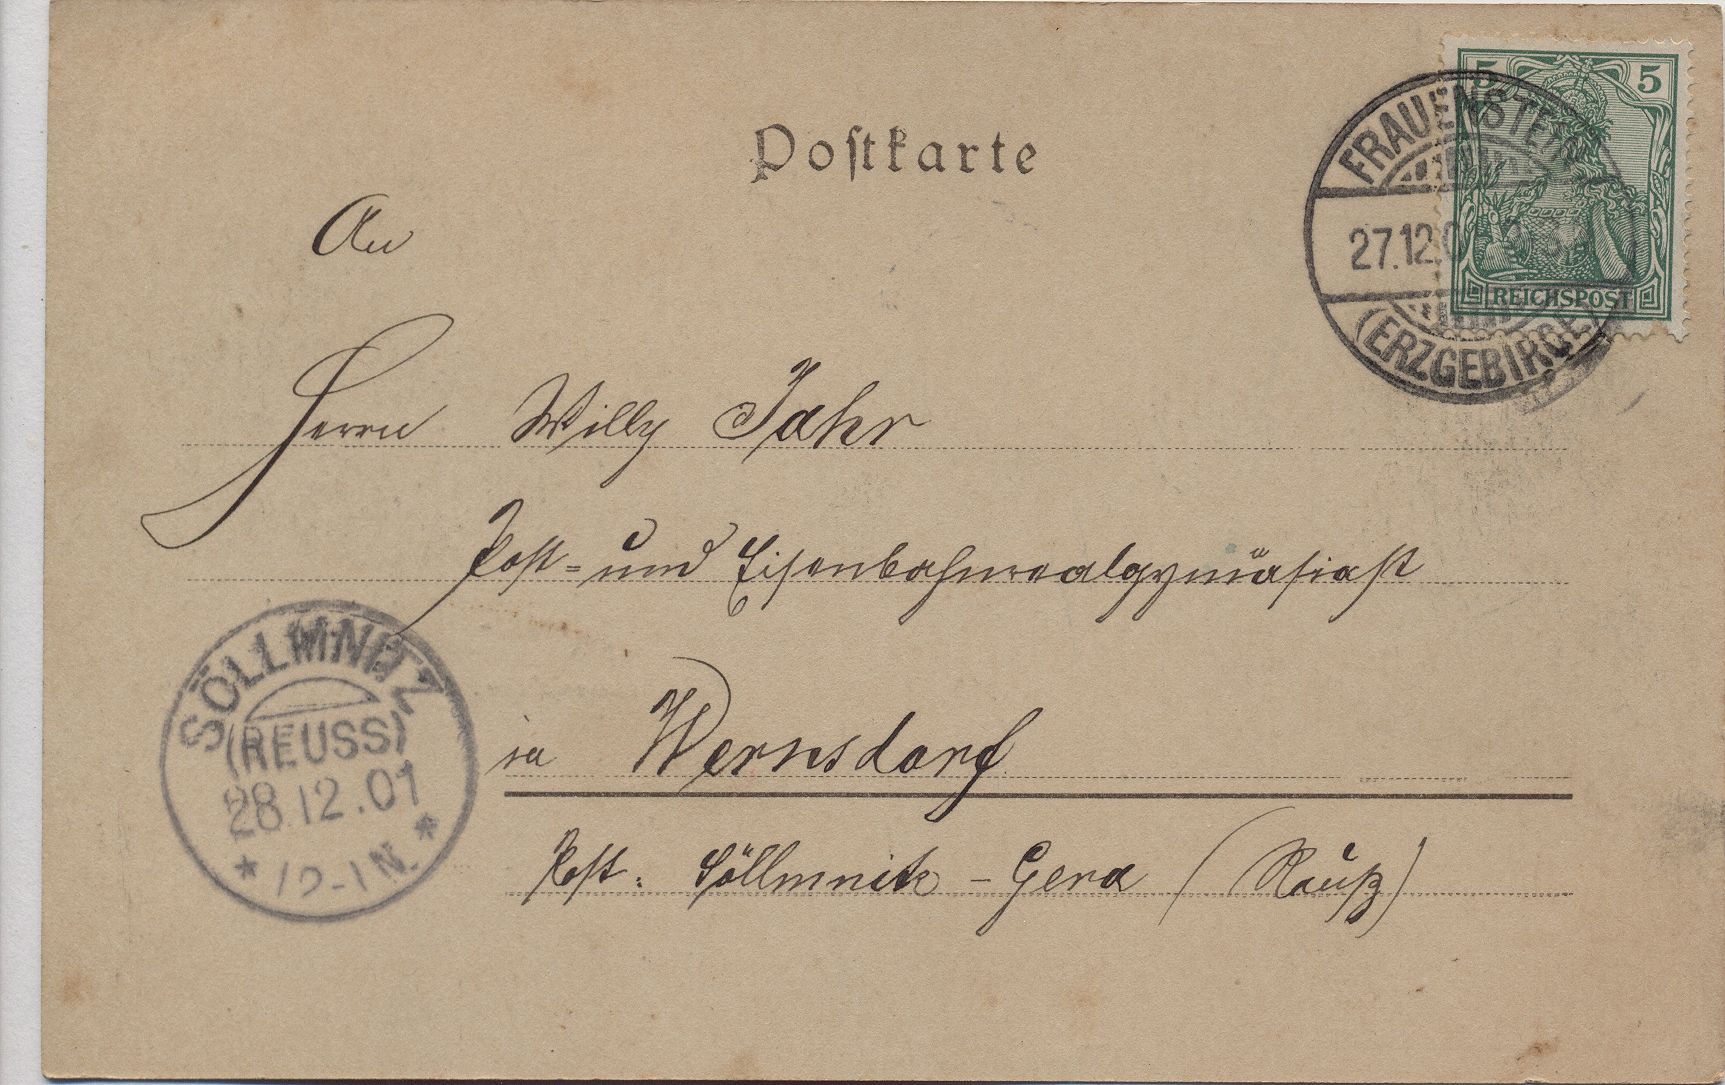 Postkarte
5 5
REICHSPOST
FRAUENSTEIN
27.12.0
(ERZGEBIRGE)
An
Herrn Willy Jahr
Post- und Eisenbahnrealgymnasiast
in Wernsdorf
Post: Söllmnitz - Gera (Reuß)
SÖLLMNITZ
(REUSS)
28.12.01
* 12-1N. *